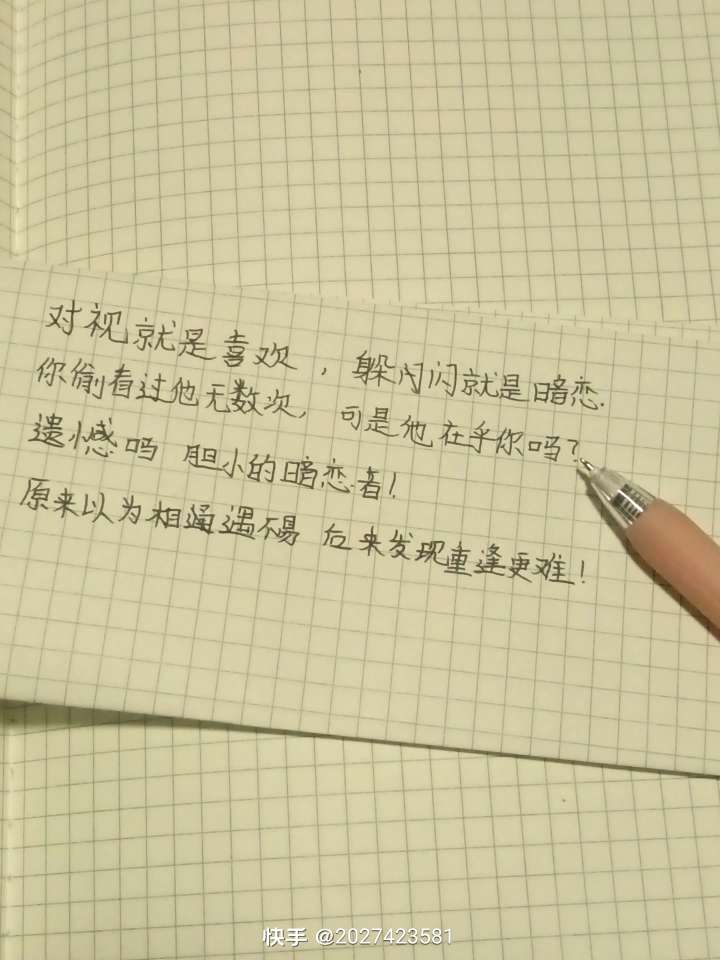 对视就是喜欢，躲闪闪就是暗恋.
你偷看过他无数次，可是他在乎你吗？
遗憾吗 胆小的暗恋者！
原来以为相遇不易 后来发现重逢更难！
快手 @2027423581